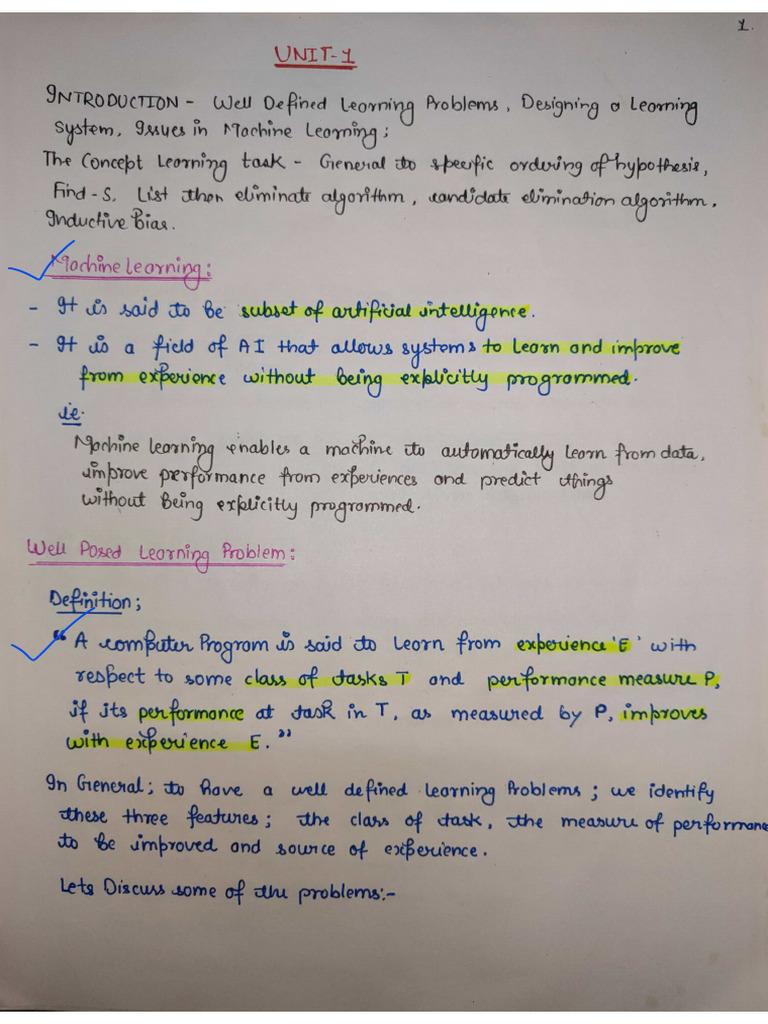 1.
UNIT-1
INTRODUCTION - Well Defined Learning Problems, Designing a Learning
System, Issues in Machine Learning;
The Concept Learning task - General to specific ordering of hypothesis,
Find-S. List then eliminate algorithm, candidate elimination algorithm,
Inductive Bias.
Machine Learning:
- It is said to be subset of artificial intelligence.
- It is a field of AI that allows systems to learn and improve
from experience without being explicitly programmed.
ie.
Machine learning enables a machine to automatically learn from data,
improve performance from experiences and predict things
without being explicitly programmed.
Well Posed Learning Problem:
Definition;
" A computer Program is said to learn from experience 'E' with
respect to some class of tasks T and performance measure P,
if its performance at task in T, as measured by P, improves
with experience E."
In General; to have a well defined learning Problems; we identify
these three features; the class of task, the measure of performance
to be improved and source of experience.
Lets Discuss some of the problems:-